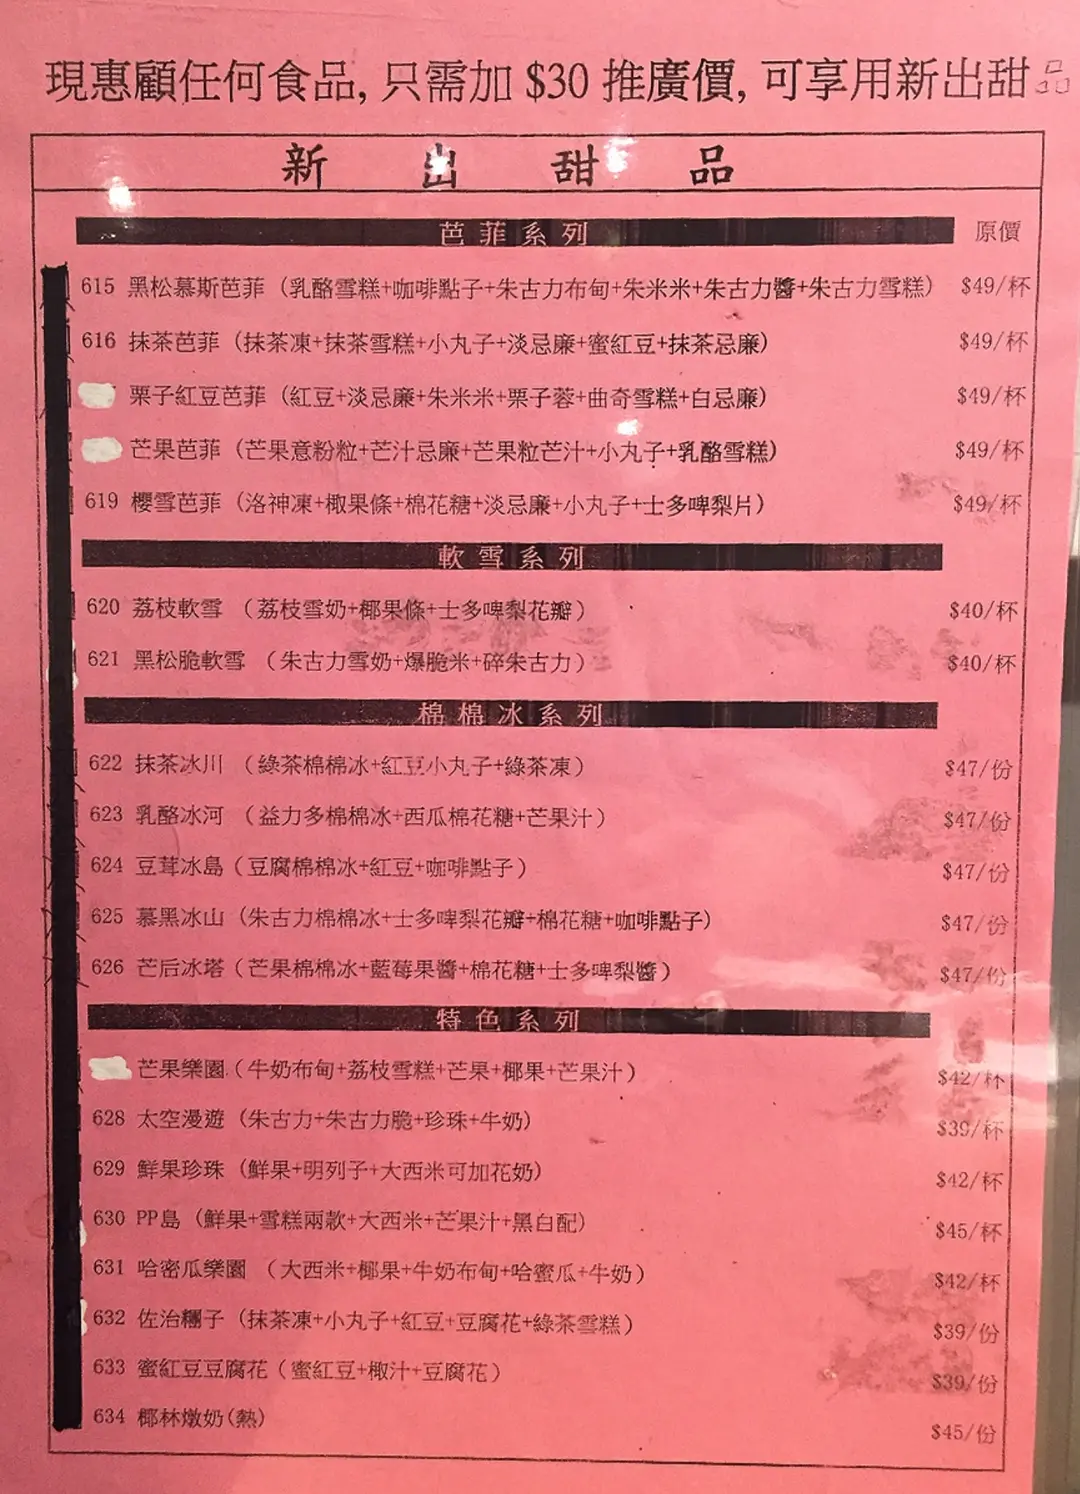 現惠顧任何食品, 只需加 $30 推廣價, 可享用新出甜品
新出甜品
芭菲系列 原價
615 黑松慕斯芭菲 (乳酪雪糕+咖啡點子+朱古力布甸+朱米米+朱古力醬+朱古力雪糕) $49/杯
616 抹茶芭菲 (抹茶凍+抹茶雪糕+小丸子+淡忌廉+蜜紅豆+抹茶忌廉) $49/杯
栗子紅豆芭菲 (紅豆+淡忌廉+朱米米+栗子蓉+曲奇雪糕+白忌廉) $49/杯
芒果芭菲 (芒果意粉粒+芒汁忌廉+芒果粒芒汁+小丸子+乳酪雪糕) $49/杯
619 櫻雪芭菲 (洛神凍+椰果條+棉花糖+淡忌廉+小丸子+士多啤梨片) $49/杯
軟雪系列
620 荔枝軟雪 (荔枝雪奶+椰果條+士多啤梨花瓣) $40/杯
621 黑松脆軟雪 (朱古力雪奶+爆脆米+碎朱古力) $40/杯
棉棉冰系列
622 抹茶冰川 (綠茶棉棉冰+紅豆小丸子+綠茶凍) $47/份
623 乳酪冰河 (益力多棉棉冰+西瓜棉花糖+芒果汁) $47/份
624 豆茸冰島 (豆腐棉棉冰+紅豆+咖啡點子) $47/份
625 慕黑冰山 (朱古力棉棉冰+士多啤梨花瓣+棉花糖+咖啡點子) $47/份
626 芒后冰塔 (芒果棉棉冰+藍莓果醬+棉花糖+士多啤梨醬) $47/份
特色系列
芒果樂園 (牛奶布甸+荔枝雪糕+芒果+椰果+芒果汁) $42/杯
628 太空漫遊 (朱古力+朱古力脆+珍珠+牛奶) $39/杯
629 鮮果珍珠 (鮮果+明列子+大西米可加花奶) $42/杯
630 PP島 (鮮果+雪糕兩款+大西米+芒果汁+黑白配) $45/杯
631 哈密瓜樂園 (大西米+椰果+牛奶布甸+哈蜜瓜+牛奶) $42/杯
632 佐治糰子 (抹茶凍+小丸子+紅豆+豆腐花+綠茶雪糕) $39/份
633 蜜紅豆豆腐花 (蜜紅豆+椰汁+豆腐花) $39/份
634 椰林燉奶(熱) $45/份